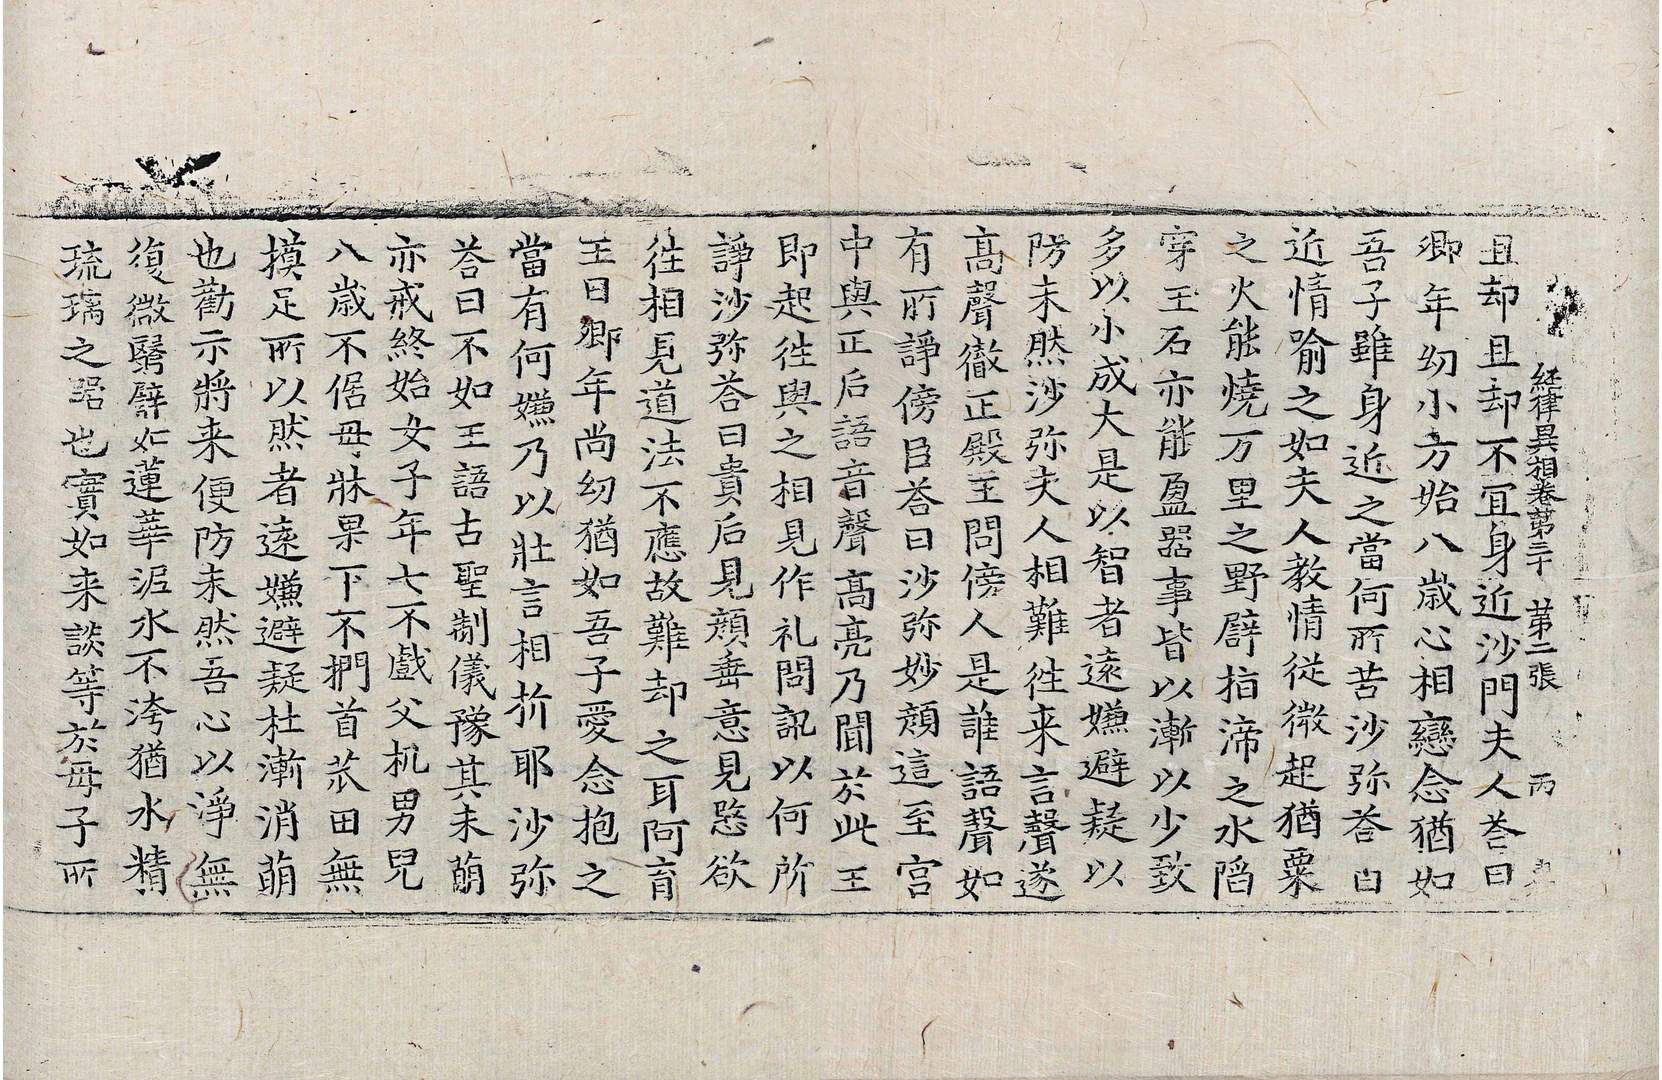 経律異相卷第三十 第二張 丙
且却且却不宜身近沙門夫人荅曰
卿年幼小方始八歲心相戀念猶如
吾子雖身近之當何所苦沙弥荅曰
近情喻之如夫人教情従微起猶粟
之火能燒万里之野譬指渧之水陷
穿王石亦能盈器事皆以漸以少致
多以小成大是以智者遠嫌避疑以
防未然沙弥夫人相難徃来言聲遂
高聲徹正殿王問傍人是誰語聲如
有所諍傍臣荅曰沙弥妙顔這至宫
中與正后語音聲高亮乃聞於此王
即起徃與之相見作礼問訊以何所
諍沙弥荅曰貴后見顔垂意見愍欲
徃相見道法不應故難却之耳阿育
王曰卿年尚幼猶如吾子愛念抱之
當有何嫌乃以壯言相折耶沙弥
荅曰不如王語古聖制儀豫其未萠
亦戒終始女子年七不戲父机男兒
八歲不倨母牀果下不捫首苽田無
摸足所以然者遠嫌避疑杜漸消萠
也勸示將来便防未然吾心以淨無
復微翳譬如蓮華泥水不洿猶水精
琉璃之器也實如来談等於母子所